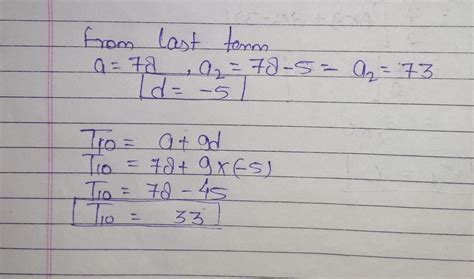 From last term
a = 78 , a₂ = 78 - 5 = a₂ = 73
d = -5
T₁₀ = a + 9d
T₁₀ = 78 + 9 × (-5)
T₁₀ = 78 - 45
T₁₀ = 33